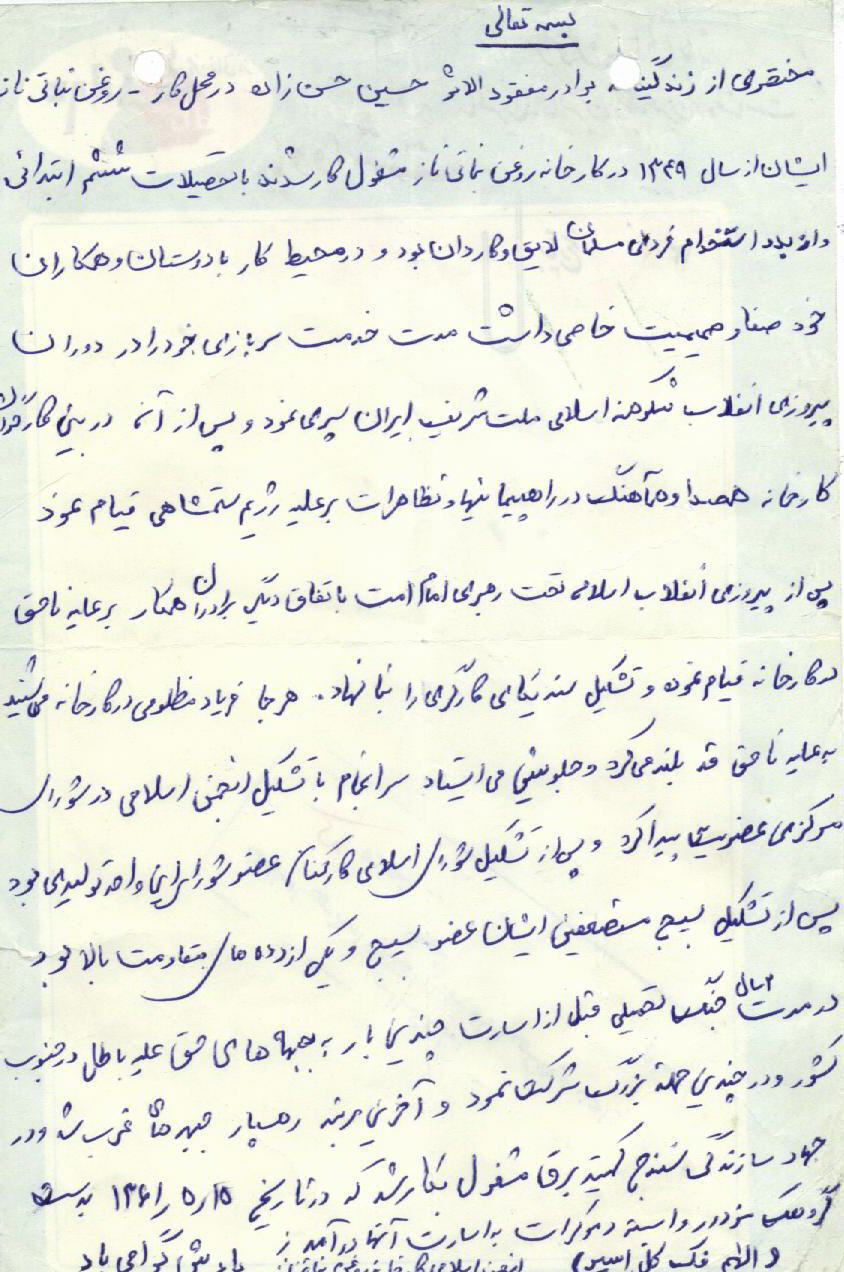 بسمه تعالی
مختصری از زندگینامه برادر مفقود الاثر حسین حسن زاده در محل کار - روغن نباتی ناز
ایشان از سال ۱۳۴۹ در کارخانه روغن نباتی ناز مشغول کار شدند با تحصیلات ششم ابتدائی
و از بدو استخدام فردی مسلمان لایق و کاردان بود و در محیط کار با دوستان و همکاران
خود صفا و صمیمیت خاصی داشت مدت خدمت سربازی خود را در دوران
پیروزی انقلاب شکوهمند اسلامی ملت شریف ایران سپری نمود و پس از آن در بین کارگران
کارخانه همصدا و هماهنگ در راهپیمائیها و تظاهرات بر علیه رژیم ستمشاهی قیام نمود
پس از پیروزی انقلاب اسلامی تحت رهبری امام امت باتفاق دیگر برادران همکار بر علیه ناحق
در کارخانه قیام نموده و تشکیل سندیکای کارگری را بنا نهاد. هر جا فریاد مظلومی در کارخانه می شنید
به علیه ناحق قد بلند می کرد و جلویش می ایستاد سرانجام با تشکیل انجمن اسلامی در شورای
مرکزی عضویت پیدا کرد و پس از تشکیل شورای اسلامی کارکنان عضو شورا برای واحد تولیدی بود
پس از تشکیل بسیج مستضعفین ایشان عضو بسیج و یکی از رده های مقاومت بالا بود
در مدت ۲ سال جنگ تحمیلی قبل از اسارت چندین بار به جبهه های حق علیه باطل در جنوب
کشور و در چندین حمله بزرگ شرکت نمود و آخرین مرتبه رهسپار جبهه های غرب شد و در
جهاد سازندگی سنندج کمیته برق مشغول بکار شد که در تاریخ ۱۵ر۵ر۱۳۶۱ بدست
گروهک مزدور وابسته دموکرات به اسارت آنها درآمد
(والهم فک کل اسیر) انجمن اسلامی کارخانه روغن نباتی ناز یادش گرامی باد